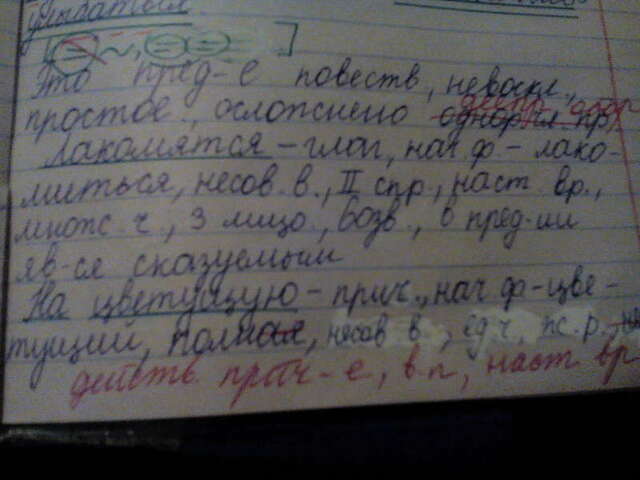 улыбаться
Это пред-е повеств, невоскл.,
простое, осложнено однор. гл. пр.
Лакомятся – глаг, нач. ф. – лако-
миться, несов. в., II спр., наст. вр.,
множ. ч., 3 лицо., возв., в пред-ии
яв-ся сказуемым
На цветущую – прич., нач. ф – цве-
тущий, полная, несов в., ед ч, ж. р.,
действ. прич-е, в. п, наст вр